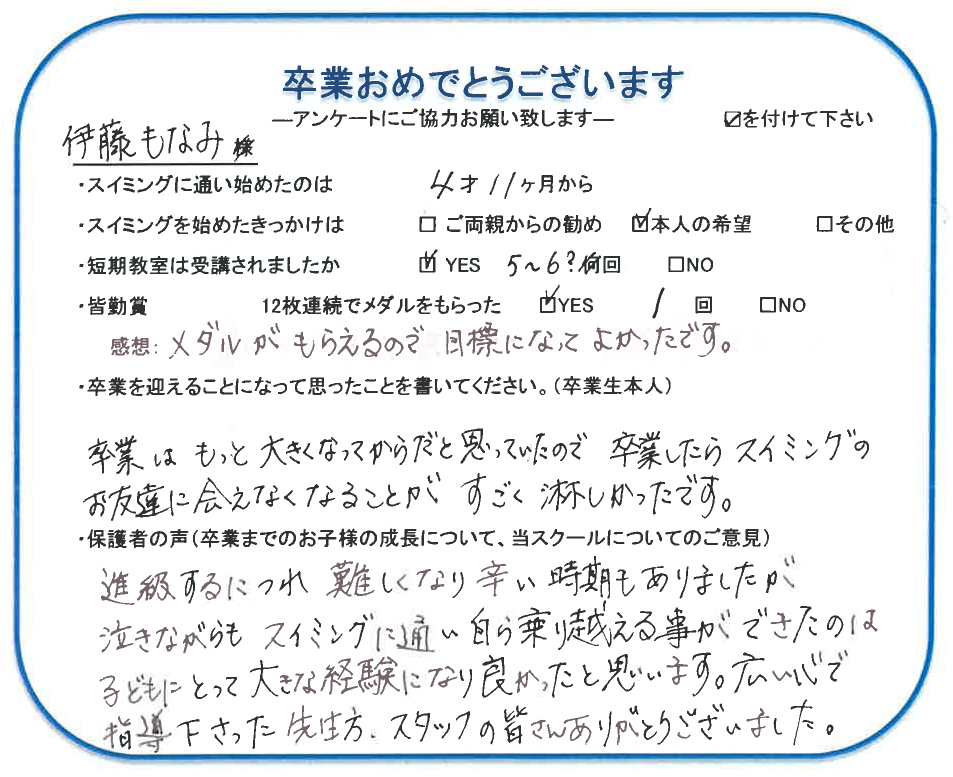 卒業おめでとうございます
―アンケートにご協力お願い致します― ☑を付けて下さい
伊藤もなみ様
・スイミングに通い始めたのは 4才11ヶ月から
・スイミングを始めたきっかけは □ ご両親からの勧め ☑本人の希望 □その他
・短期教室は受講されましたか ☑ YES 5～6?何回 □NO
・皆勤賞 12枚連続でメダルをもらった ☑YES 1 回 □NO
感想: メダルがもらえるので目標になってよかったです。
・卒業を迎えることになって思ったことを書いてください。(卒業生本人)
卒業はもっと大きくなってからだと思っていたので卒業したらスイミングの
お友達に会えなくなることがすごく淋しかったです。
・保護者の声(卒業までのお子様の成長について、当スクールについてのご意見)
進級するにつれ難しくなり辛い時期もありましたが
泣きながらもスイミングに通い自ら乗り越える事ができたのは
子どもにとって大きな経験になり良かったと思います。広い心で
指導下さった先生方、スタッフの皆さんありがとうございました。